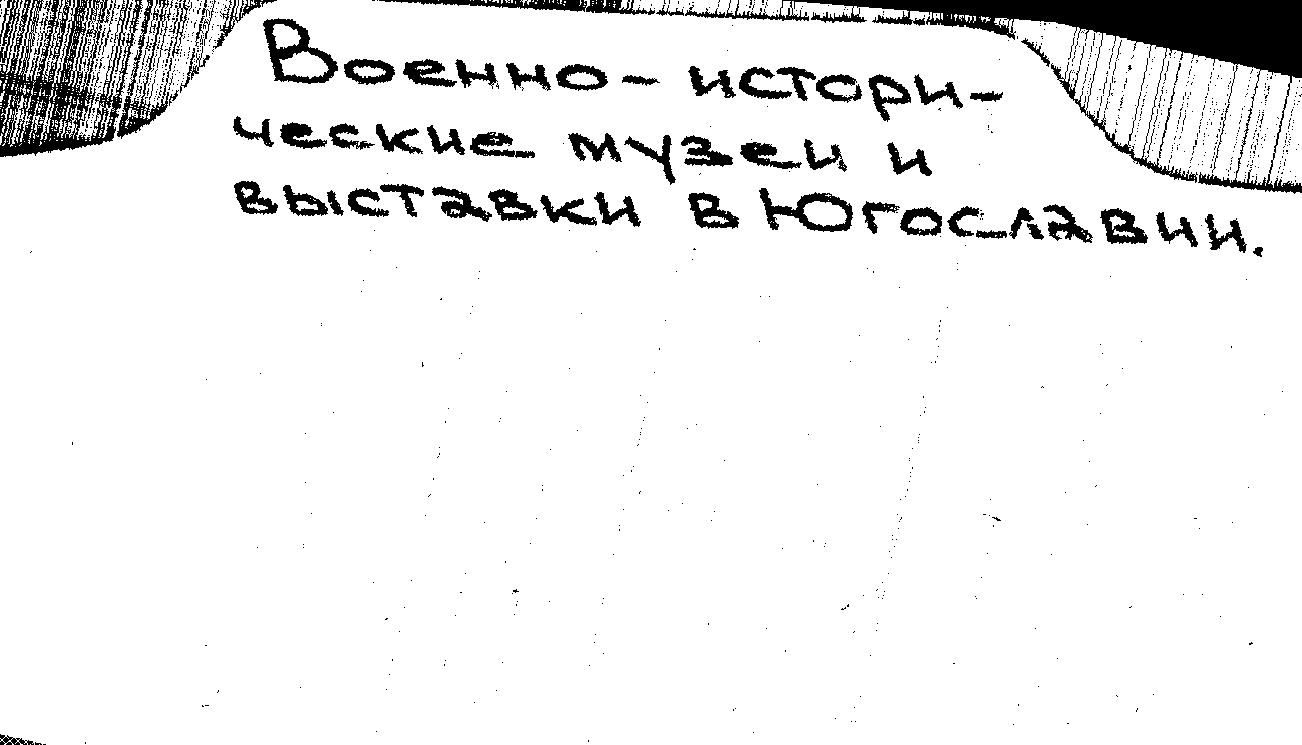 Военно-истори-
ческие музеи и
выставки в Югославии.